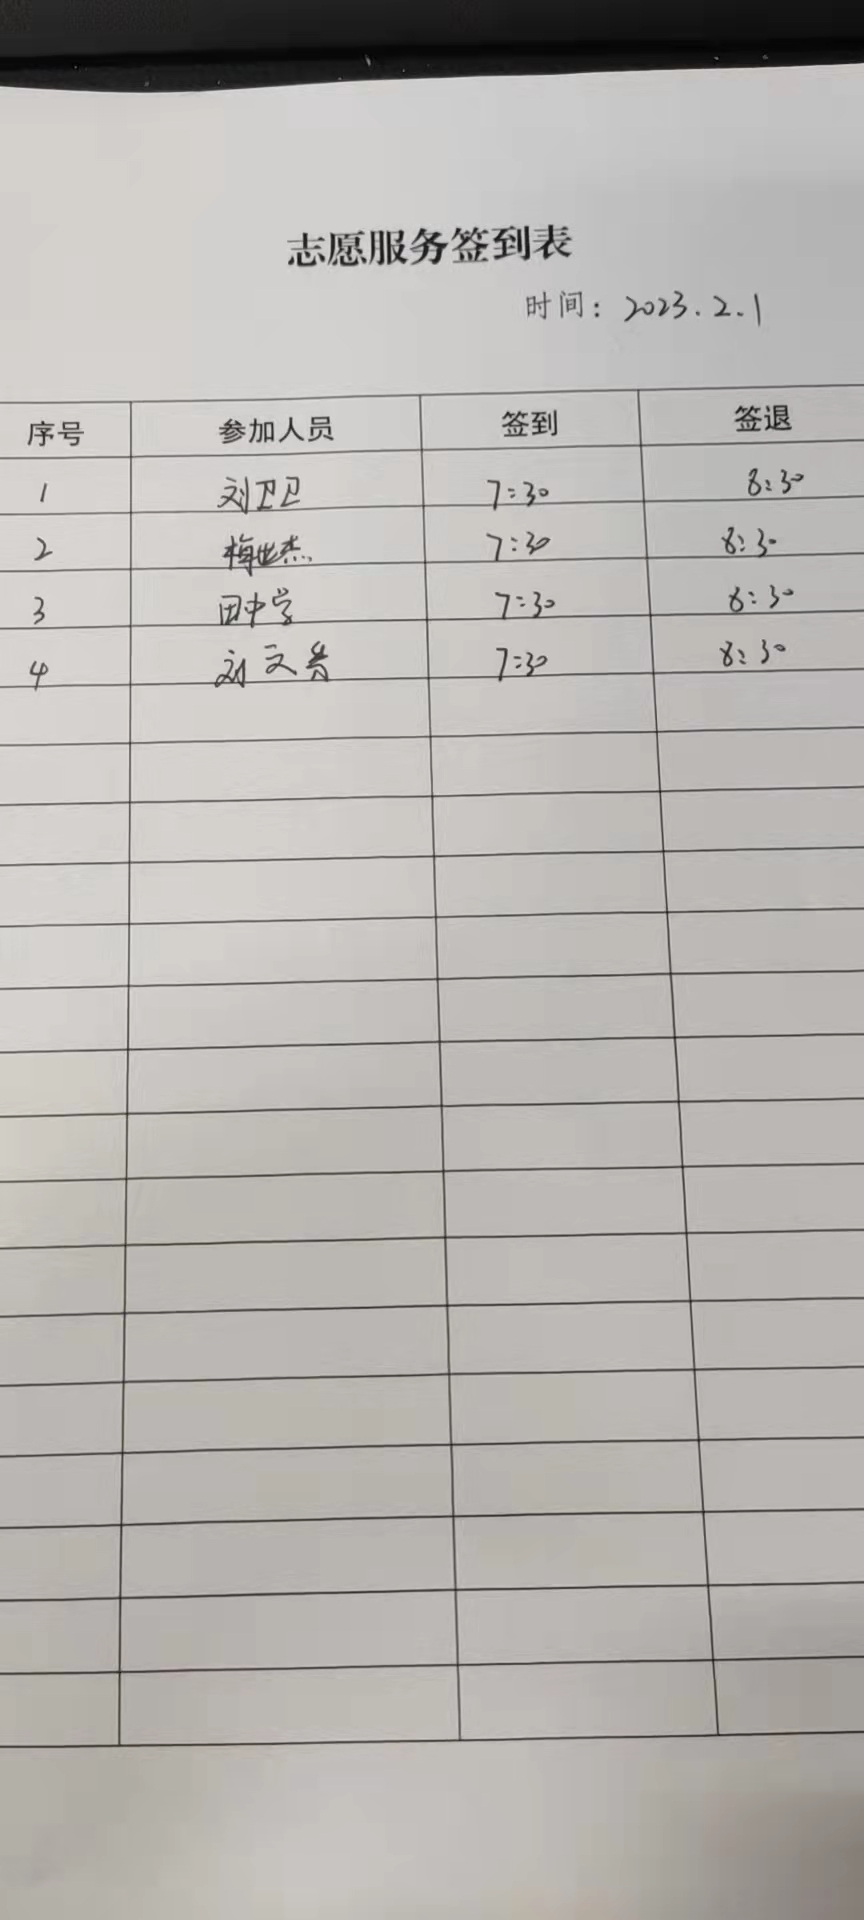 志愿服务签到表
时间：2023.2.1
序号 参加人员 签到 签退
1 刘卫卫 7:30 8:30
2 梅世杰 7:30 8:30
3 田中学 7:30 8:30
4 刘文 7:30 8:30